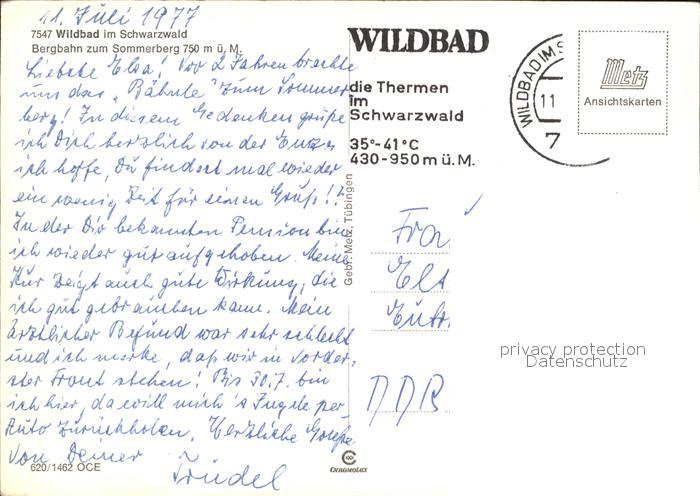 11. Juli 1977
7547 Wildbad im Schwarzwald
Bergbahn zum Sommerberg 750 m ü. M.
Liebste Elsa! Vor 2 Jahren brachte
uns das "Bähnle" zum Sommer-
berg! In diesem Gedenken grüße
ich Dich herzlich von der Enz,
ich hoffe, Du findest mal wieder
ein wenig Zeit für einen Gruß!!
In der Dir bekannten Pension bin
ich wieder gut aufgehoben. Meine
Kur zeigt auch gute Wirkung, die
ich gut gebrauchen kann. Mein
ärztlicher Befund war sehr schlecht
und ich merke, daß wir in vorder-
ster Front stehen! Bis 30.7. bin
ich hier, da will mich's per
Auto zurückholen. Herzliche Grüße
von Deiner
Trudel
620/1462 OCE
WILDBAD
die Thermen
im
Schwarzwald
35°-41°C
430-950 m ü. M.
WILDBAD IM S
11
7
Metz
Ansichtskarten
Gebr. Metz, Tübingen
Fra
DDR
privacy protection
Datenschutz
CHROMOLUX